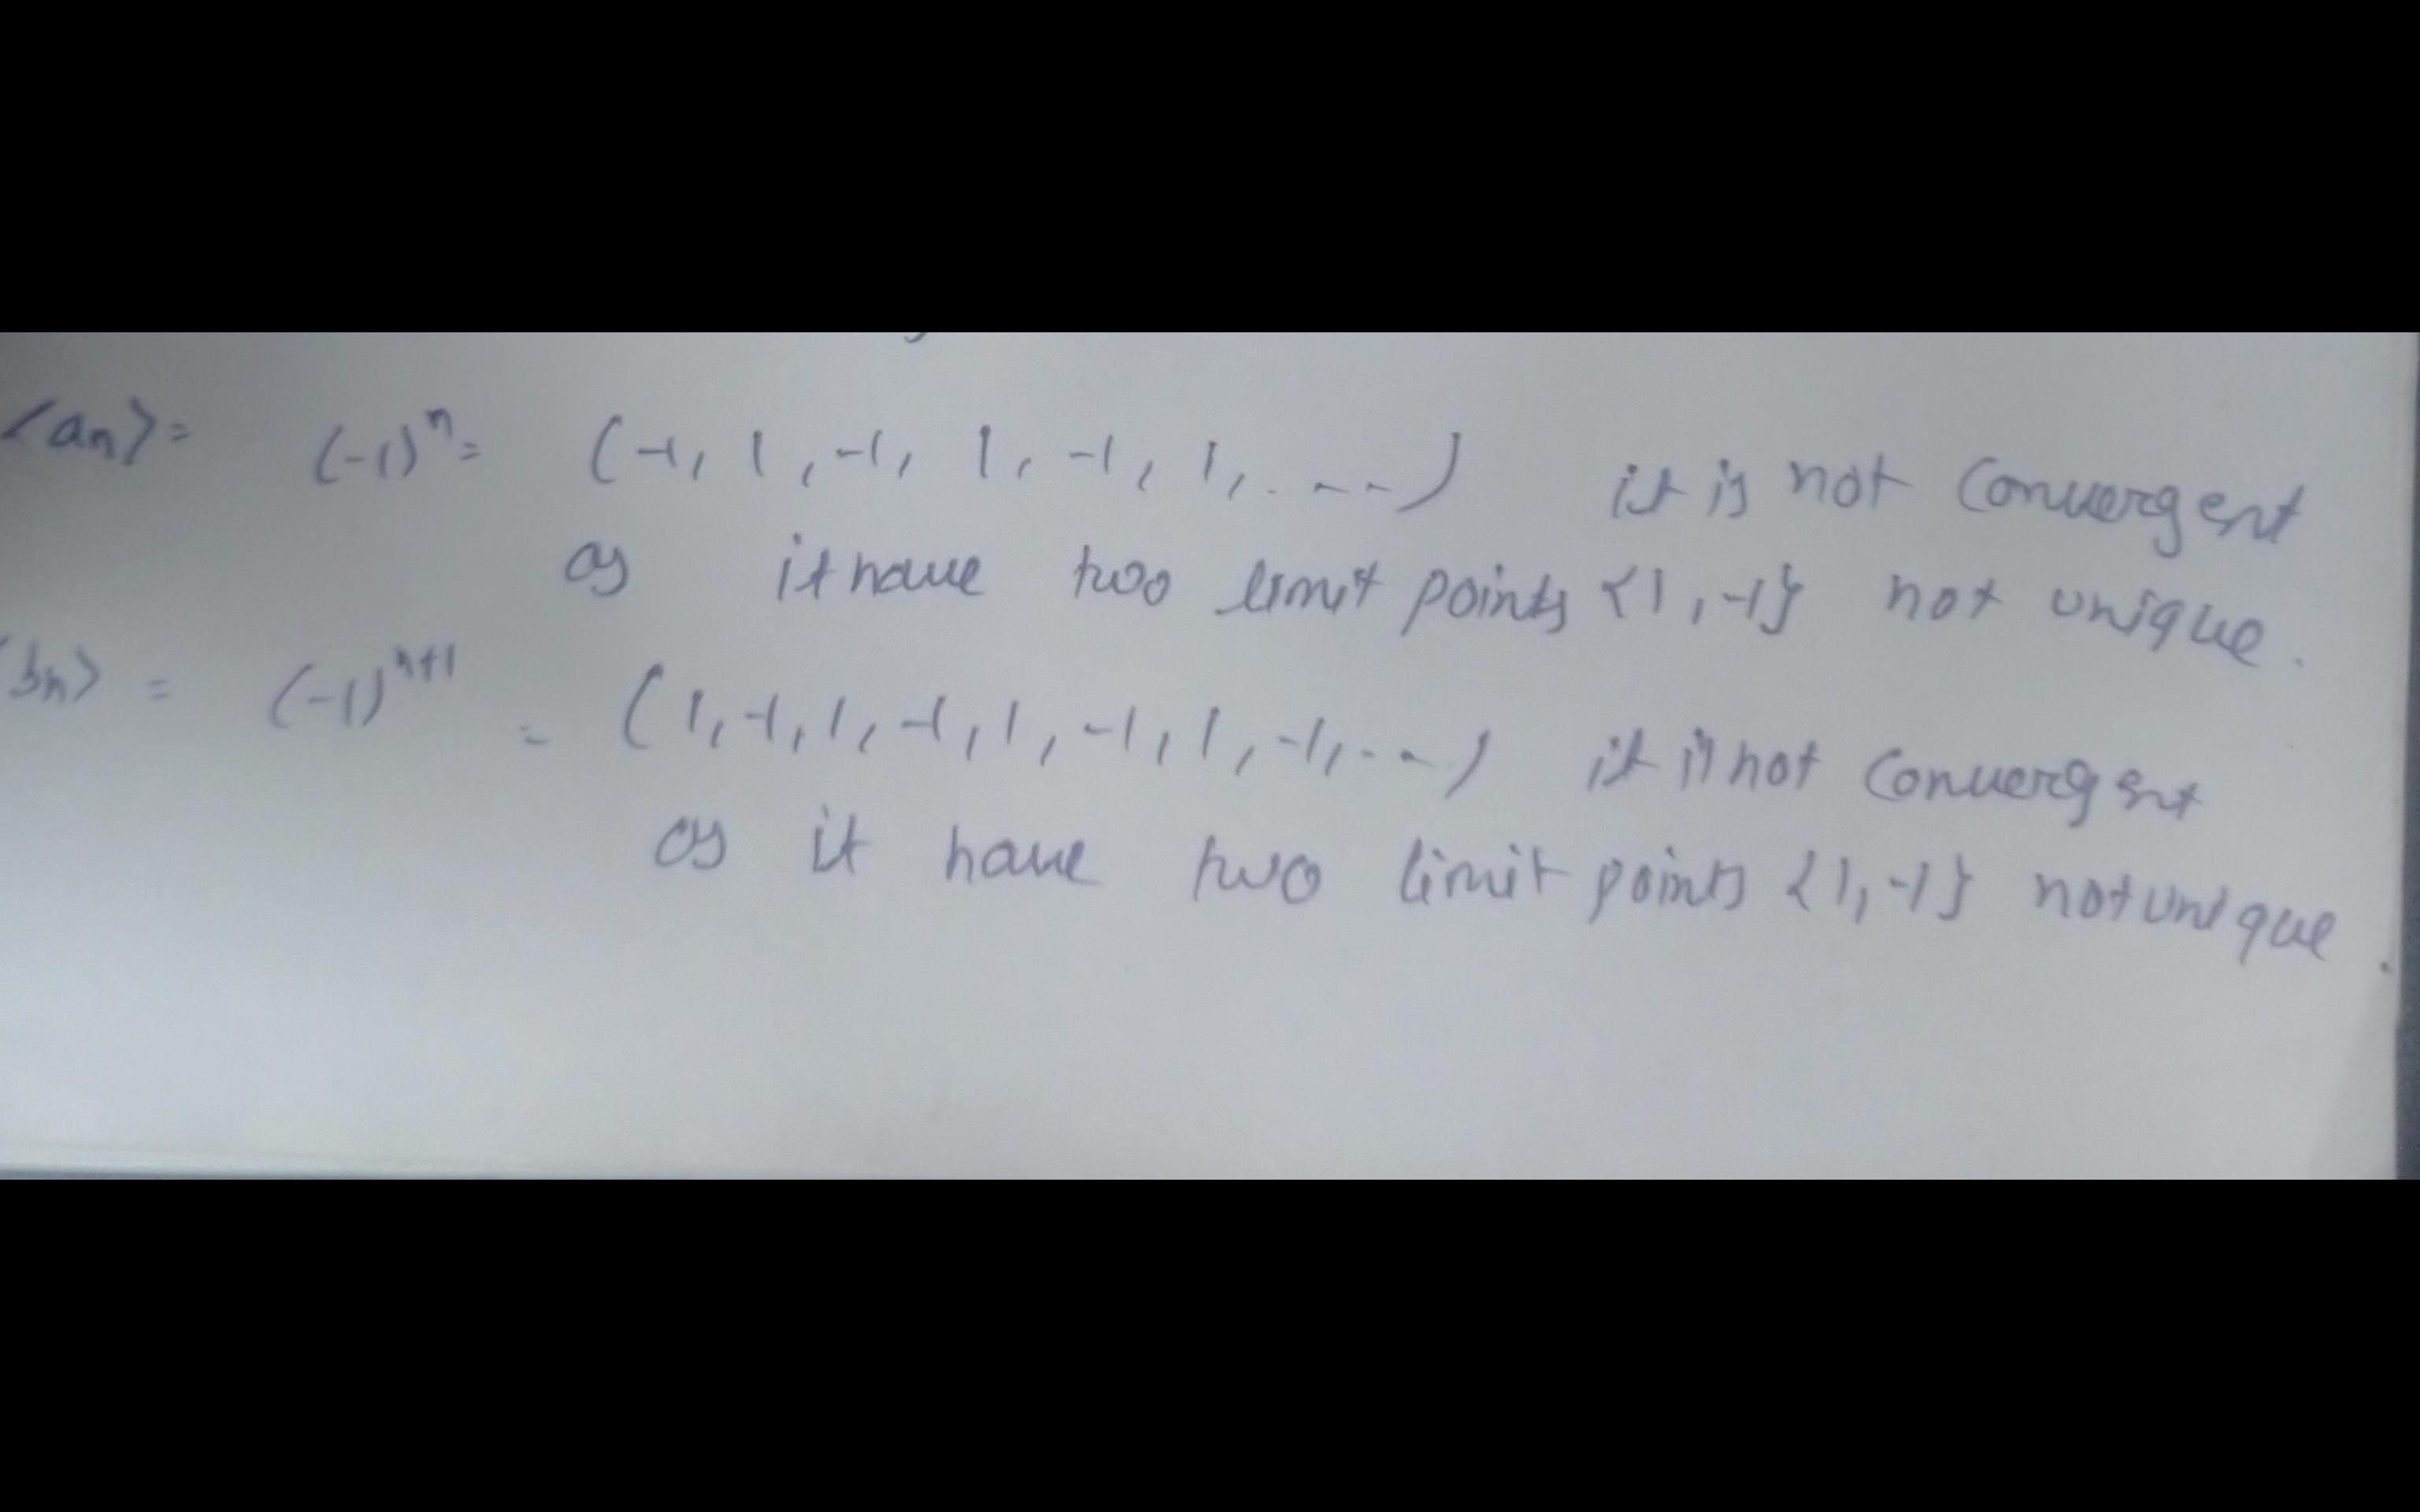 <an> = (-1)^n = (-1, 1, -1, 1, -1, 1, . - - -) it is not convergent
as it have two limit points {1, -1} not unique.
<bn> = (-1)^n+1 = (1, -1, 1, -1, 1, -1, 1, -1, . . -) it is not convergent
as it have two limit points {1, -1} not unique.